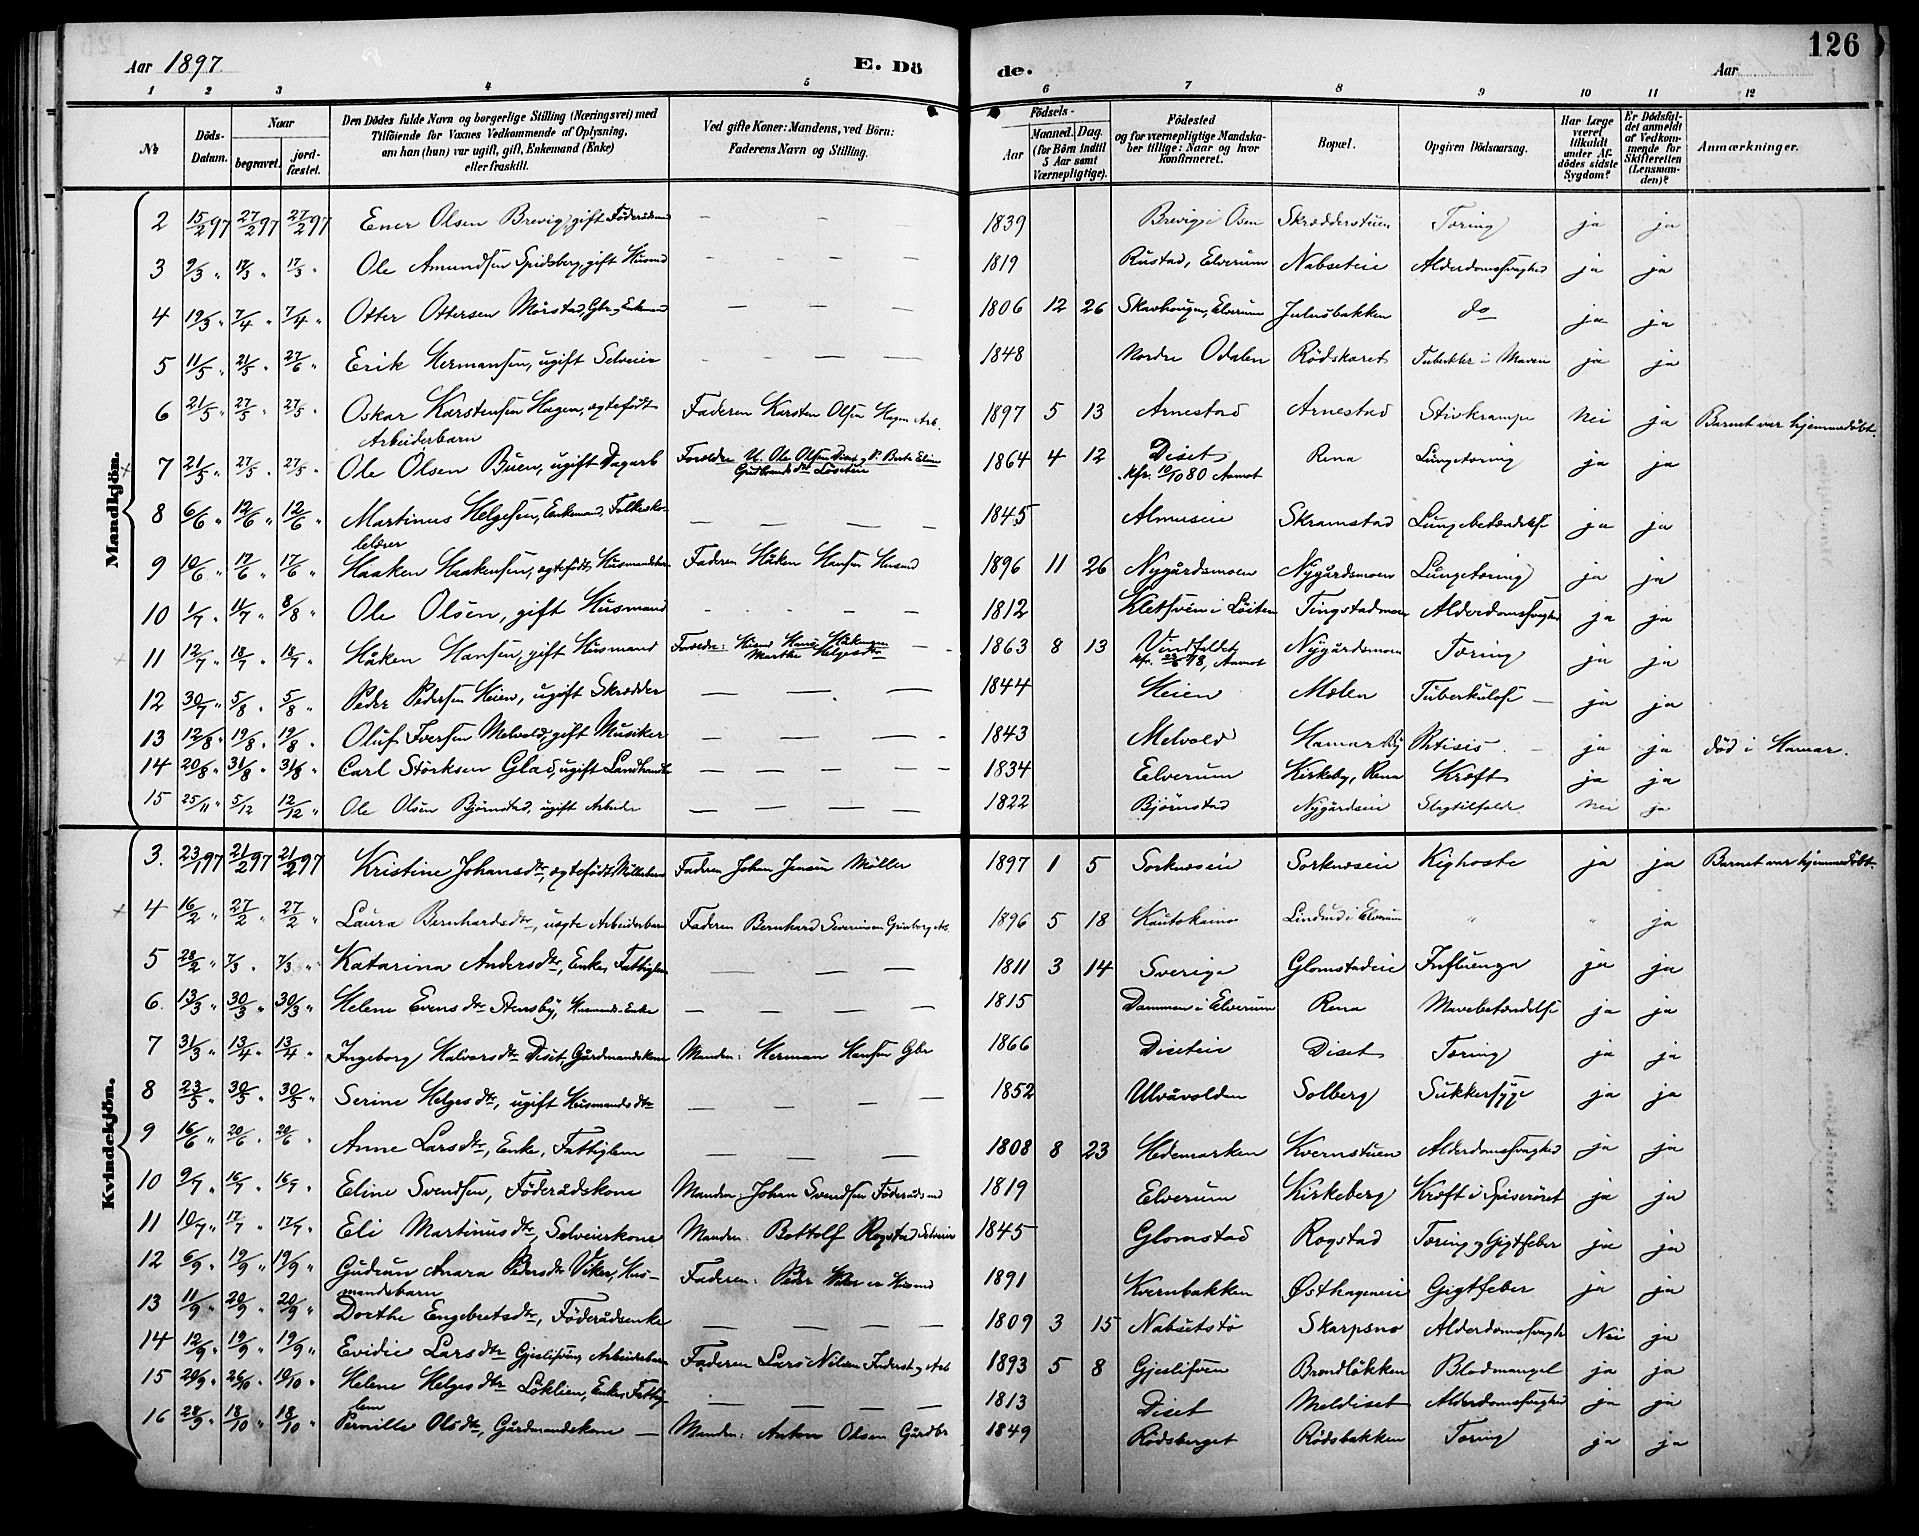 126
Aar 1897.
E. Dö
de.
Aar
1 2 3 4 5 6 7 8 9 10 11 12
№ Döds-Datum. Naar begravet. jordfæstet. Den Dödes fulde Navn og borgerlige Stilling (Næringsvei) med Tilföiende for Voxnes Vedkommende af Oplysning, om han (hun) var ugift, gift, Enkemand (Enke) eller fraskilt. Ved gifte Koner: Mandens, ved Börn: Faderens Navn og Stilling. Födsels- Aar Maaned. Dag. (for Börn indtil 5 Aar samt Værnepligtige). Födested og for værnepligtige Mandskaber tillige: Naar og hvor Konfirmeret. Bopæl. Opgiven Dödsaarsag. Har Læge været tilkaldt under Afdödes sidste Sygdom? Er Dödsfaldet anmeldt af Vedkommende for Skifteretten (Lensmanden)? Anmærkninger.
Mandkjön.
2 15/2 97 27/2 97 27/2 97 Ener Olsen Brevig, gift Föderaadsmd — — — 1839 Brevig i Osen Skrædderstuen Tæring ja ja
3 9/3 " 17/3 " 17/3 " Ole Amundsen Spidsberg, gift Husmd — — — — 1819 Rustad, Elverum Nabseteie Alderdomssvaghed ja ja
4 19/3 " 7/4 " 7/4 " Otter Ottersen Mörstad, Gbr., Enkemand — — — — 1806 12 26 Skavhougen, Elverum Julusbakken do ja ja
5 11/5 " 21/5 " 27/6 " Erik Hermansen, ugift Selveier — — — — 1848 Nordre Odalen Rödskæret Tuberkler i Maven ja ja
6 21/5 " 27/5 " 27/5 " Oskar Karstensen Hagen, ægtefödt Arbeiderbarn Faderen Karsten Olsen Hagen Arb. 1897 5 13 Arnestad Arnestad Stivkrampe Nei ja Barnet var hjemmedöbt.
7 21/5 " 27/5 " 27/5 " Ole Olsen Buen, ugift Dagarb Forældre U. Ole Olsen Diset, P. Berte Eline Gudbrandsdtr Löseteie 1864 4 12 Diset kfr. 10/10 80 Aamot Rena Lungetæring ja ja
8 6/6 " 12/6 " 12/6 " Martinus Helgesen, Enkemand, Folkeskolelærer — — — — 1845 Almuseie Skramstad Lungebetændelse ja ja
9 10/6 " 17/6 " 17/6 " Haaken Haakensen, ægtefödt, Husmandsbarn Faderen Håken Hansen Husmd 1896 11 26 Nygårdsmoen Nygårdsmoen Lungetæring ja ja
10 1/7 " 11/7 " 8/8 " Ole Olsen, gift Husmand — — — — 1812 Kletsven i Löiten Tingstadmoen Alderdomssvaghed ja ja
11 12/7 " 18/7 " 18/7 " Håken Hansen, gift Husmand Forældre: Husmd Hans Håkensen Marthe Helgesdtr — — 1863 8 13 Vindfaldet kfr. 78, Aamot Nygårdsmoen Tæring ja ja
12 30/7 " 5/8 " 5/8 " Peder Pedersen Heien, ugift Skrædder — — — 1844 Heien Mælen Tuberkulose — ja ja
13 12/8 " 19/8 " 19/8 " Oluf Iversen Melvold, gift Musiker — — — — 1843 Melvold Hamar By Phtisis — ja ja död i Hamar.
14 20/8 " 31/8 " 31/8 " Carl Störksen Glad, ugift Landhandler — — — — 1834 Elverum Kirkeby, Rena Kræft ja ja
15 25/11 " 5/12 12/12 " Ole Olsen Björnstad, ugift Arbeider — — — — 1822 Björnstad Nygårdseie Slagtilfælde Nei ja
Kvindekjön.
3. 23/1 97 21/2 97 21/2 97 Kristine Johansdtr, ægtefödt, Möllebarn Faderen Johan Jensen Möller 1897 1 5 Sorknæseie Sorknæseie Kighoste ja ja Barnet var hjemmedöbt.
4 16/2 " 27/2 " 27/2 " Laura Bernhardsdtr, uægte Arbeiderbarn Faderen Bernhard Severinsen Grinberg Arb. 1896 5 18 Kautokeino Lindmd i Elverum " " ja
5 28/2 " 7/3 " 7/3 " Katarina Andersdtr, Enke, Fattiglem — — — 1811 3 14 Sverige Glomstadeie Influenza ja ja
6. 13/3 " 30/3 " 30/3 " Helene Evensdtr Stensby, Husmands-Enke — — — — 1815 Dammen i Elverum Rena Mavebetændelse ja ja
7 31/3 " 13/4 " 13/4 " Ingeborg Halvorsdtr Diset, Gårdmandskone Manden: Herman Hansen Gbr 1866 Diseteie Diset Tæring ja ja
8 23/5 " 30/5 " 30/5 " Serine Helgesdtr, ugift Husmandsdtr — — — — 1852 Ulvåvolden Solberg Sukkersyge ja ja
9 16/6 " 20/6 " 20/6 " Anne Larsdtr, Enke, Fattiglem — — — 1808 8 23 Hedemarken Kvernstuen Alderdomssvaghed ja ja
10 9/7 " 16/7 " 16/7 " Eline Svendsen, Föderådskone Manden: Johan Svendsen Föderådsmd 1819 Elverum Kirkeberg Kræft i Spiseröret ja ja
11 10/7 " 17/7 " 17/7 " Eli Martinusdtr, Selveierkone Manden: Bottolf Rogstad Selveier 1845 Glomstad Rogstad Tæring og Gigtfeber ja ja
12 6/9 " 19/9 " 19/9 " Gudrun Anara Pedersdtr Viker, Husmandsbarn Faderen: Peder Viker Husmd 1891 Kvernbakken Østhageneie Gigtfeber ja ja
13 11/9 " 20/9 " 20/9 " Dorthe Engebretsdtr, Föderådsenke — — — — 1809 3 15 Nabsetstö Skarpsno Alderdomssvagh Nei ja
14 12/9 " 19/9 " 19/9 " Evidie Larsdtr Gjeslisven, Arbeiderbarn Faderen Lars Nilsen Inderst og Arb 1893 5 8 Gjeslisven Brændlökken Blodmangel ja ja
15 20/9 " 26/10 " 10/10 " Helene Helgesdtr Löklien, Enke, Fattiglem — — — — 1813 Diset Meldiset Alderdomssvaghed ja ja
16 28/9 " 18/10 " 18/10 " Pernille Olsdtr, Gårdmandskone — Manden: Anton Olsen Gårdbr 1849 Rödsberget Rödsbakken Tæring ja ja